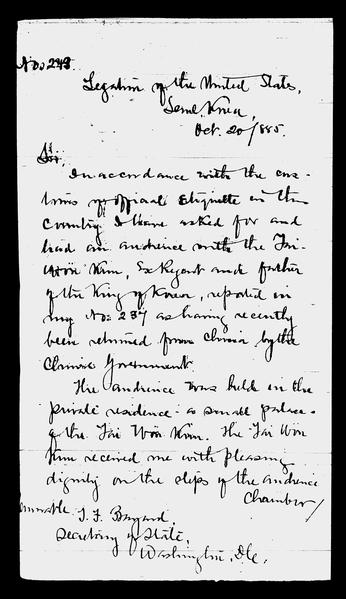 No. 243.
Legation of the United States,
Seoul, Korea,
Oct. 20/885.
Sir:
In accordance with the cus-
toms of official etiquette in this
Country I have asked for and
had an audience with the Tai-
Wön Kun, Ex Regent and father
of the King of Korea, reported in
my No. 237 as having recently
been returned from China by the
Chinese Government.
The audience was held in the
private residence - a small palace -
of the Tai Wön Kun. The Tai Won
Kun received me with pleasing
dignity on the steps of the audience
Chamber/
T. F. Bayard,
Secretary of State,
Washington, D.C.